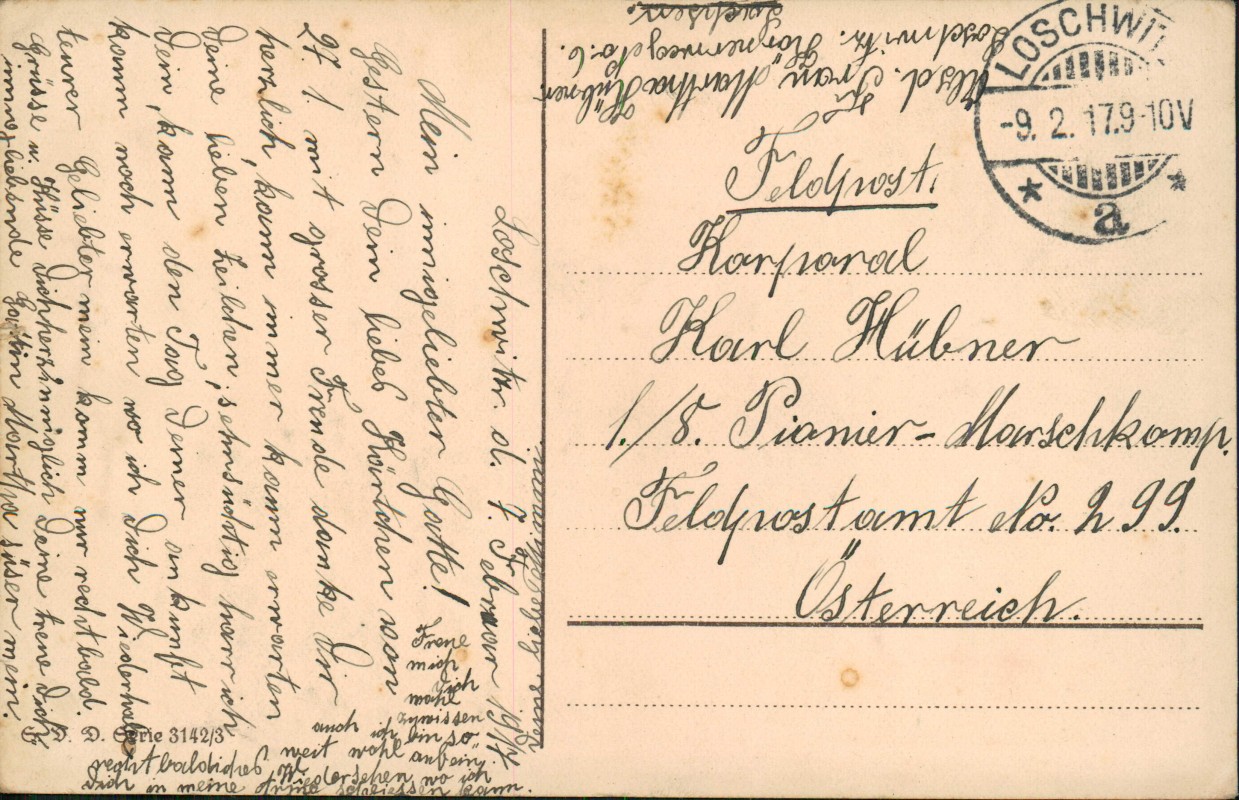 Absd. Frau Martha Hübner
Loschwitz. Körnerweg No. 6.
Sachsen.
LOSCHWIT
-9. 2. 17.9-10V
* a *
Feldpost.
Korporal
Karl Hübner
1./8. Pionier-Marschkomp.
Feldpostamt No. 299.
Österreich.
Loschwitz. d. 7. Februar 1917
Mein innigeliebter Gatte!
Gestern Dein liebes Kärtchen von
27. 1. mit grosser Freude danke Dir
herzlich, kann immer kaum erwarten
Deine lieben Zeilchen, sehnsüchtig harr ich
Dein, kann den Tag Deiner ankunft
kaum noch erwarten wo ich Dich Wiederhabe
teurer Geliebter mein komm nur recht bald.
Grüsse u. Küsse Dich herzinniglich Deine treue Dich
innigliebende Gattin Martha süser mein.
Freue
mich
Dich
wohl
zu wissen
auch ich bin so
weit wohl auf ein
recht baldiches Wiedersehen wo ich
Dich in meine Arme schliessen kann.
D. D. Serie 3142/3